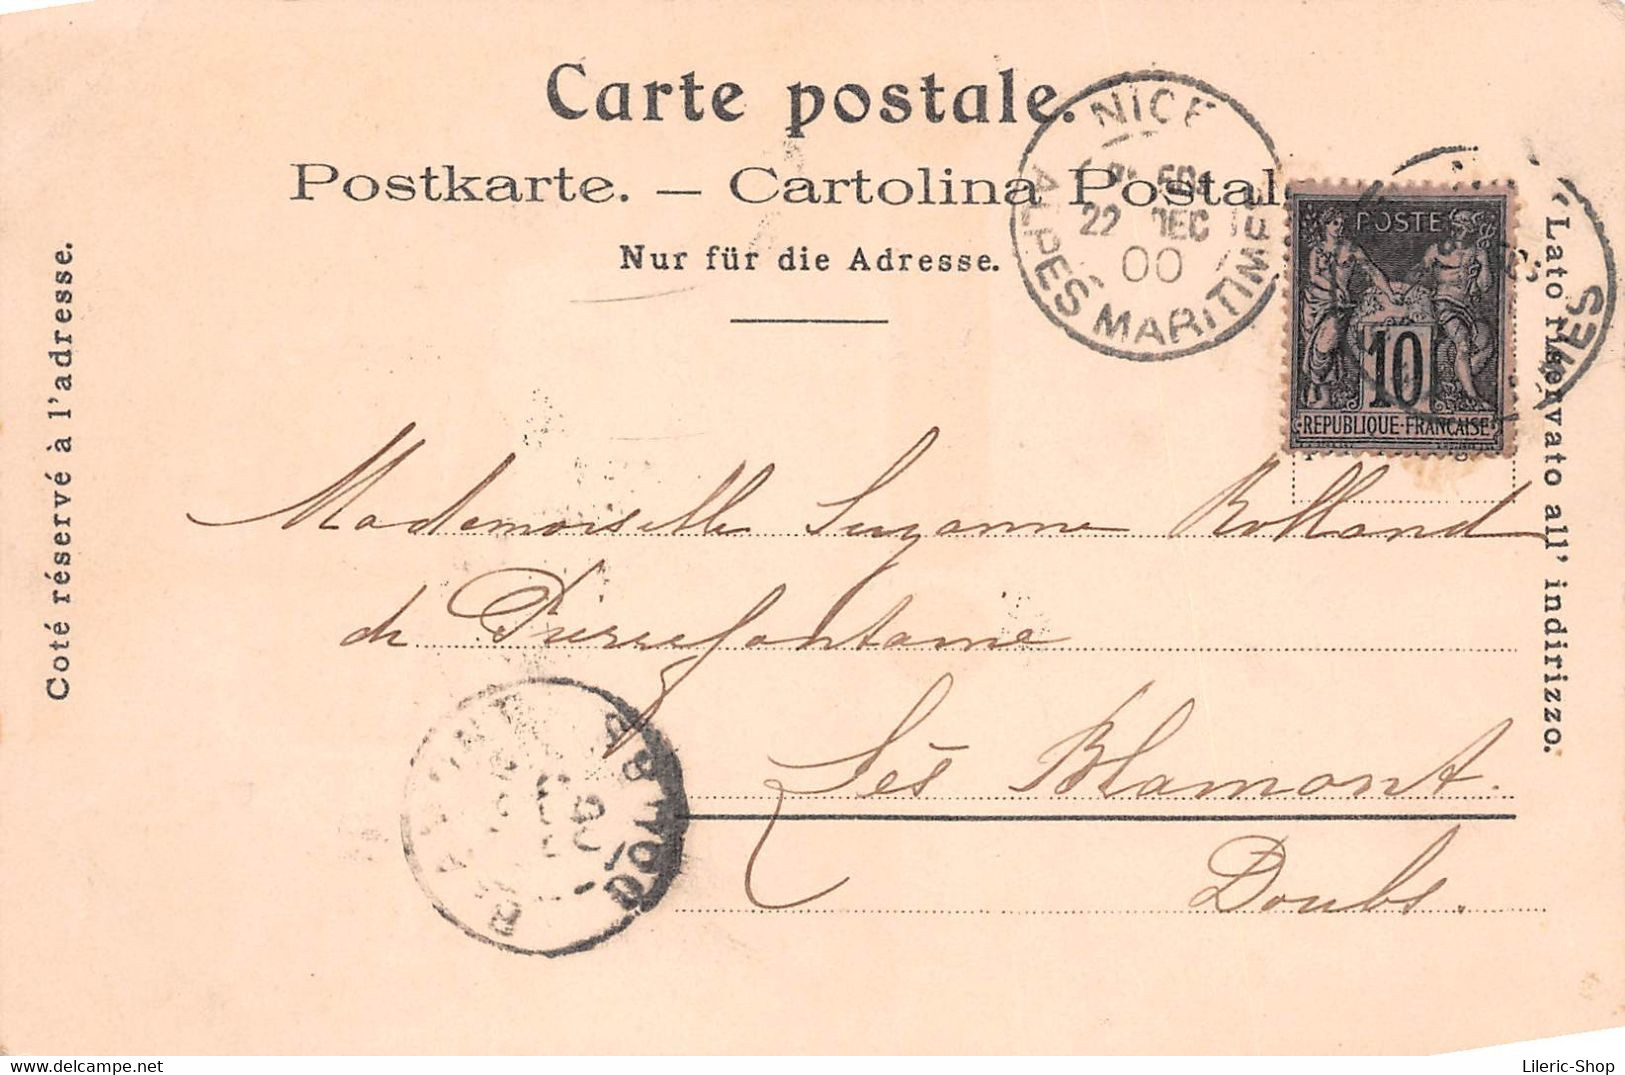 Carte postale.
Postkarte. — Cartolina Postal
Nur für die Adresse.
NICE
22 DEC
00
ALPES MARITIMES
POSTE
10
REPUBLIQUE-FRANÇAISE
MES
Coté réservé à l'adresse.
Lato riservato all' indirizzo.
Mademoiselle Suzanne Rolland
de Pierrefontaine
Lès Blamont.
Doubs.
BLAMONT
DOUBS
Lileric-Shop